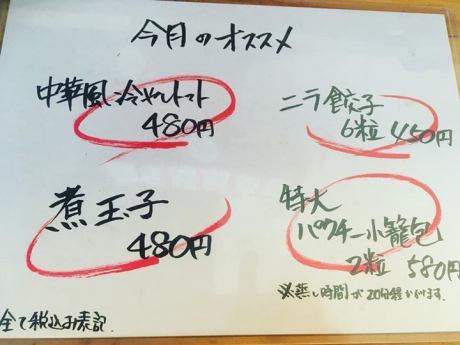 今月のオススメ
中華風冷やしトマト
480円
ニラ餃子
6粒 450円
煮玉子
480円
特大
パクチー小籠包
2粒 580円
※蒸し時間が20分程かかります.
全て税込み表記.